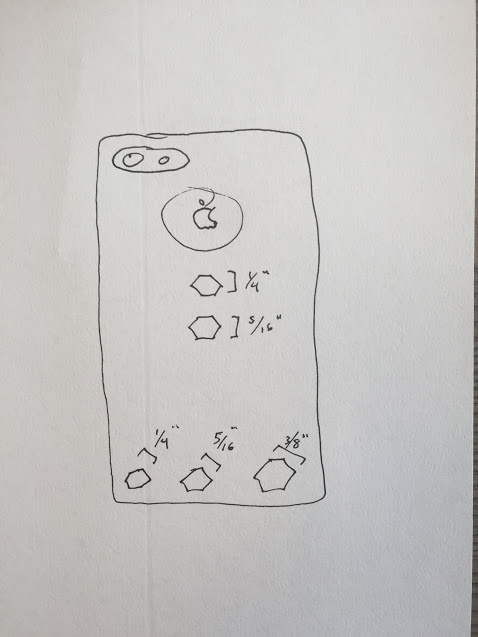 1/4"
5/16"
1/4" 5/16" 3/8"